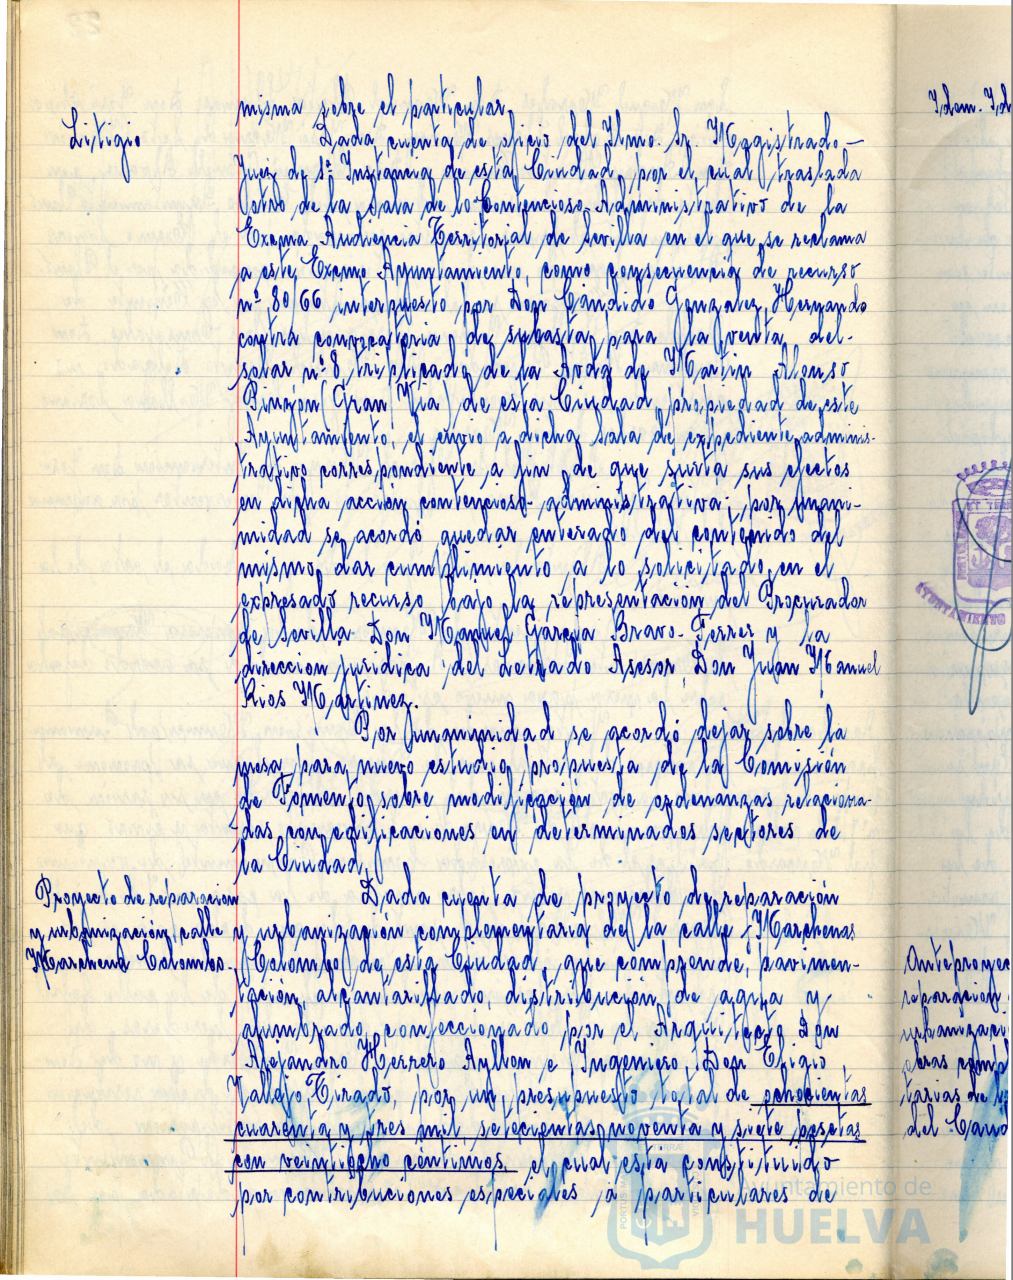 misma sobre el particular.
Litigio
Dada cuenta de oficio del Ilmo. Sr. Magistrado-
Juez de 1ª Instancia de esta Ciudad, por el cual traslada
otro de la Sala de lo Contencioso-Administrativo de la
Excma Audiencia Territorial de Sevilla en el que se reclama
a este Excmo Ayuntamiento, como consecuencia de recurso
nº 80/66 interpuesto por Don Cándido Gonzalez Hernando
contra convocatoria de subasta para la venta del
solar nº 8 triplicado de la Avda de Martin Alonso
Pinzón (Gran Via) de esta Ciudad, propiedad de este
Ayuntamiento, el envio a dicha Sala de expediente adminis-
trativo correspondiente a fin de que surta sus efectos
en dicha acción contencioso-administrativa. por unani-
midad se acordó quedar enterado del contenido del
mismo, dar cumplimiento a lo solicitado en el
expresado recurso bajo la representación del Procurador
de Sevilla Don Manuel García Bravo-Ferrer y la
direccion juridica del Letrado Asesor, Don Juan Manuel
Rios Martinez.
Por unanimidad se acordó dejar sobre la
mesa, para nuevo estudio, propuesta de la Comisión
de Fomento sobre modificación de ordenanzas relaciona-
das con edificaciones en determinados sectores de
la Ciudad.
Proyecto de reparacion
y urbanización calle
Marchena Colombo.
Dada cuenta de proyecto de reparación
y urbanización complementaria de la calle Marchena
Colombo de esta Ciudad, que comprende, pavimen-
tación, alcantarillado, distribución de agua y
alumbrado, confeccionado por el Arquitecto Don
Alejandro Herrero Ayllon e Ingeniero, Don Eligio
Vallejo Tirado, por un presupuesto total de ochocientas
cuarenta y tres mil, setecientas noventa y siete pesetas
con veintiocho céntimos. el cual esta constituido
por contribuciones especiales a particulares de
Idem. Id
Anteproyec
reparación
urbanizaci
obras comp
tarias de
del
Ayuntamiento de
HUELVA
AYUNTAMIENTO